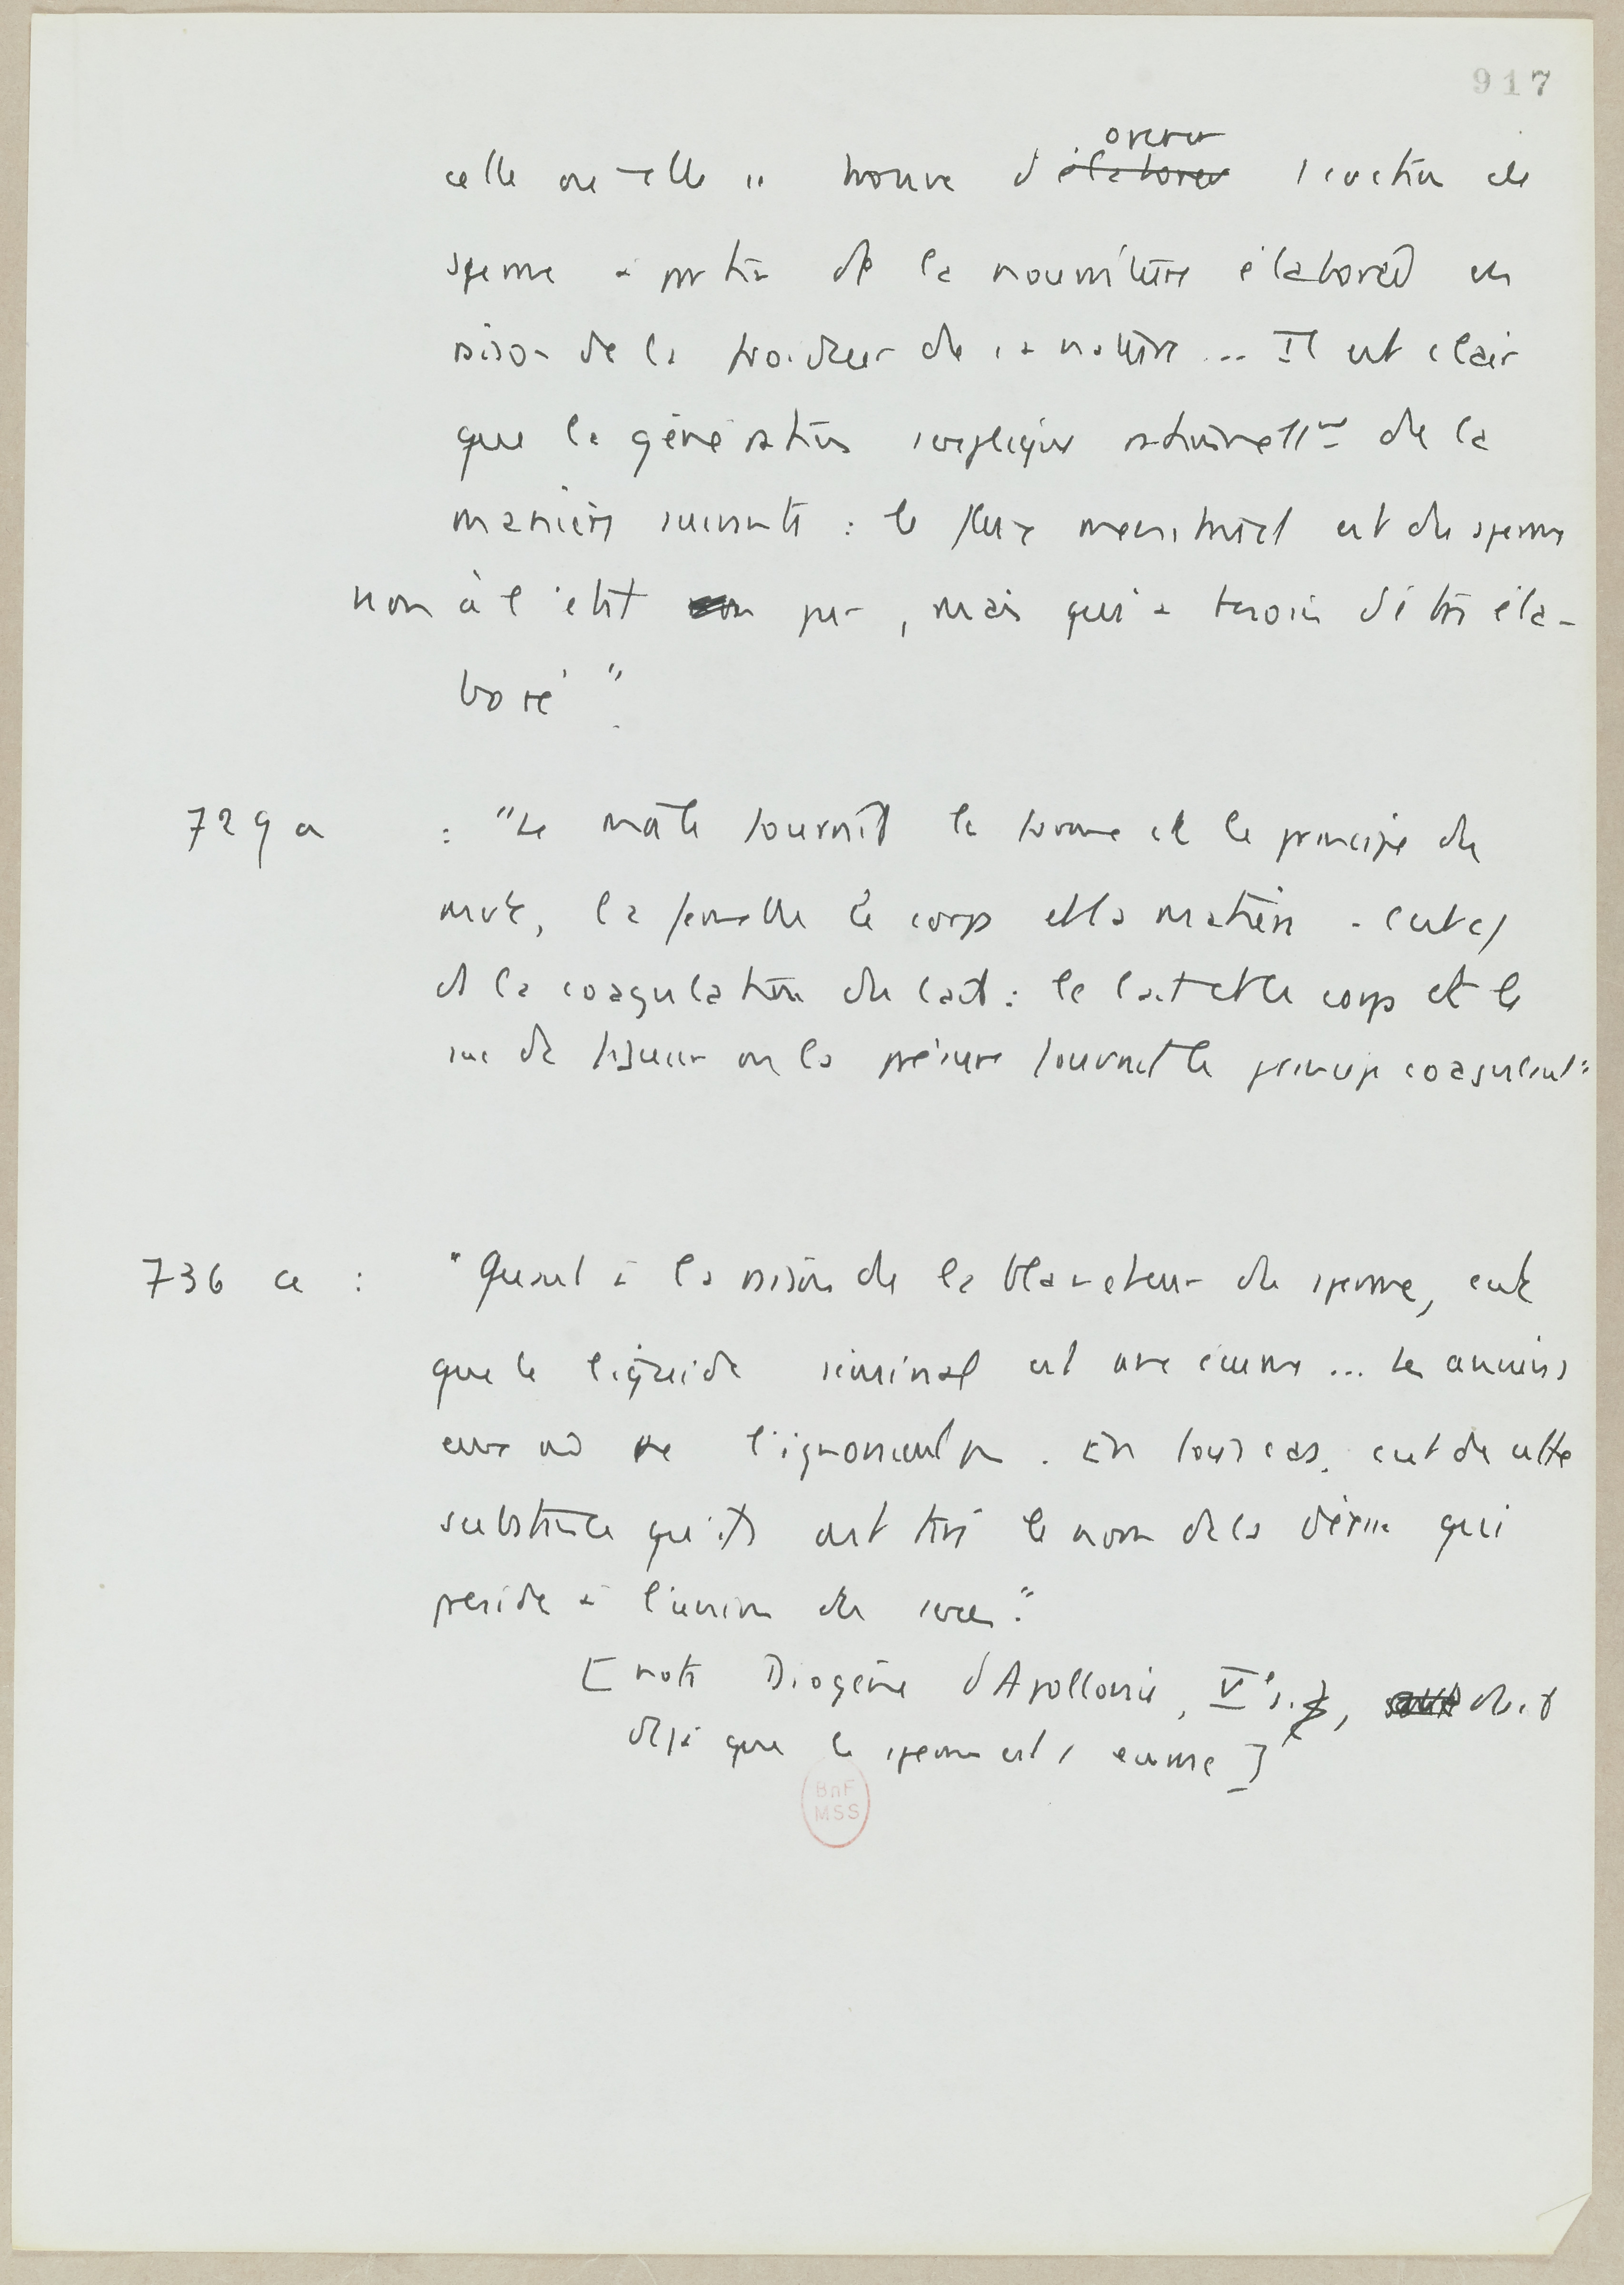 917
celle où elle se trouve d'élaborer opérer la coction du
sperme à partir de la nourriture élaborée en
raison de la froideur de sa nature... Il est clair
que la génération s'explique naturellᵐᵗ de la
manière suivante : le flux menstruel est du sperme
non à l'état pur, mais qui a besoin d'être éla-
boré".
729 a : "Le mâle fournit la forme et le principe du
mvt, la femelle le corps et la matière - cest cf
de la coagulation du lait : le lait est le corps et le
suc de figuier ou la présure fournit le principe coagulant"
736 a : "Quant à la raison de la blancheur du sperme, c'est
que le liquide séminal est une écume... Les anciens
eux mê ne l'ignoraient pas. En tous cas, c'est de cette
substance qu'ils ont tiré le nom de la déesse qui
préside à l'union des sexes."
[note Diogène d'Apollonie, Vᵉ s., disait
déjà que le sperme est 1 écume]
BnF
MSS